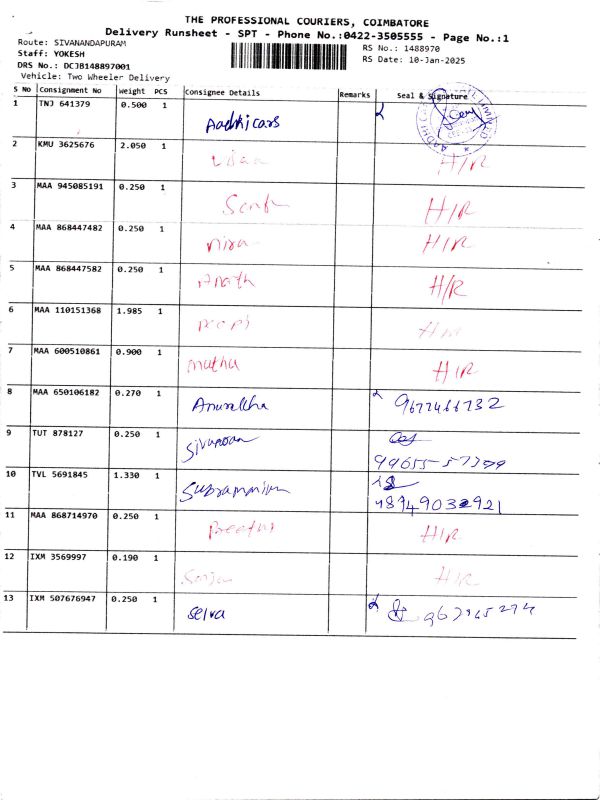 THE PROFESSIONAL COURIERS, COIMBATORE
Delivery Runsheet - SPT - Phone No.:0422-3505555 - Page No.:1
Route: SIVANANDAPURAM
RS No.: 1488970
Staff: YOKESH
RS Date: 10-Jan-2025
DRS No.: DCJB148897001
Vehicle: Two Wheeler Delivery
S No Consignment No Weight PCS Consignee Details Remarks Seal & Signature
1 TNJ 641379 0.500 1 Aadhi cars
2 KMU 3625676 2.050 1 H/R
3 MAA 945085191 0.250 1 H/R
4 MAA 868447482 0.250 1 H/R
5 MAA 868447582 0.250 1 H/R
6 MAA 110151368 1.985 1
7 MAA 600510861 0.900 1 muthu H/R
8 MAA 650106182 0.270 1
9 TUT 878127 0.250 1
10 TVL 5691845 1.330 1
11 MAA 868714970 0.250 1 H/R
12 IXM 3569997 0.190 1 H/R
13 IXM 507676947 0.250 1 Selva